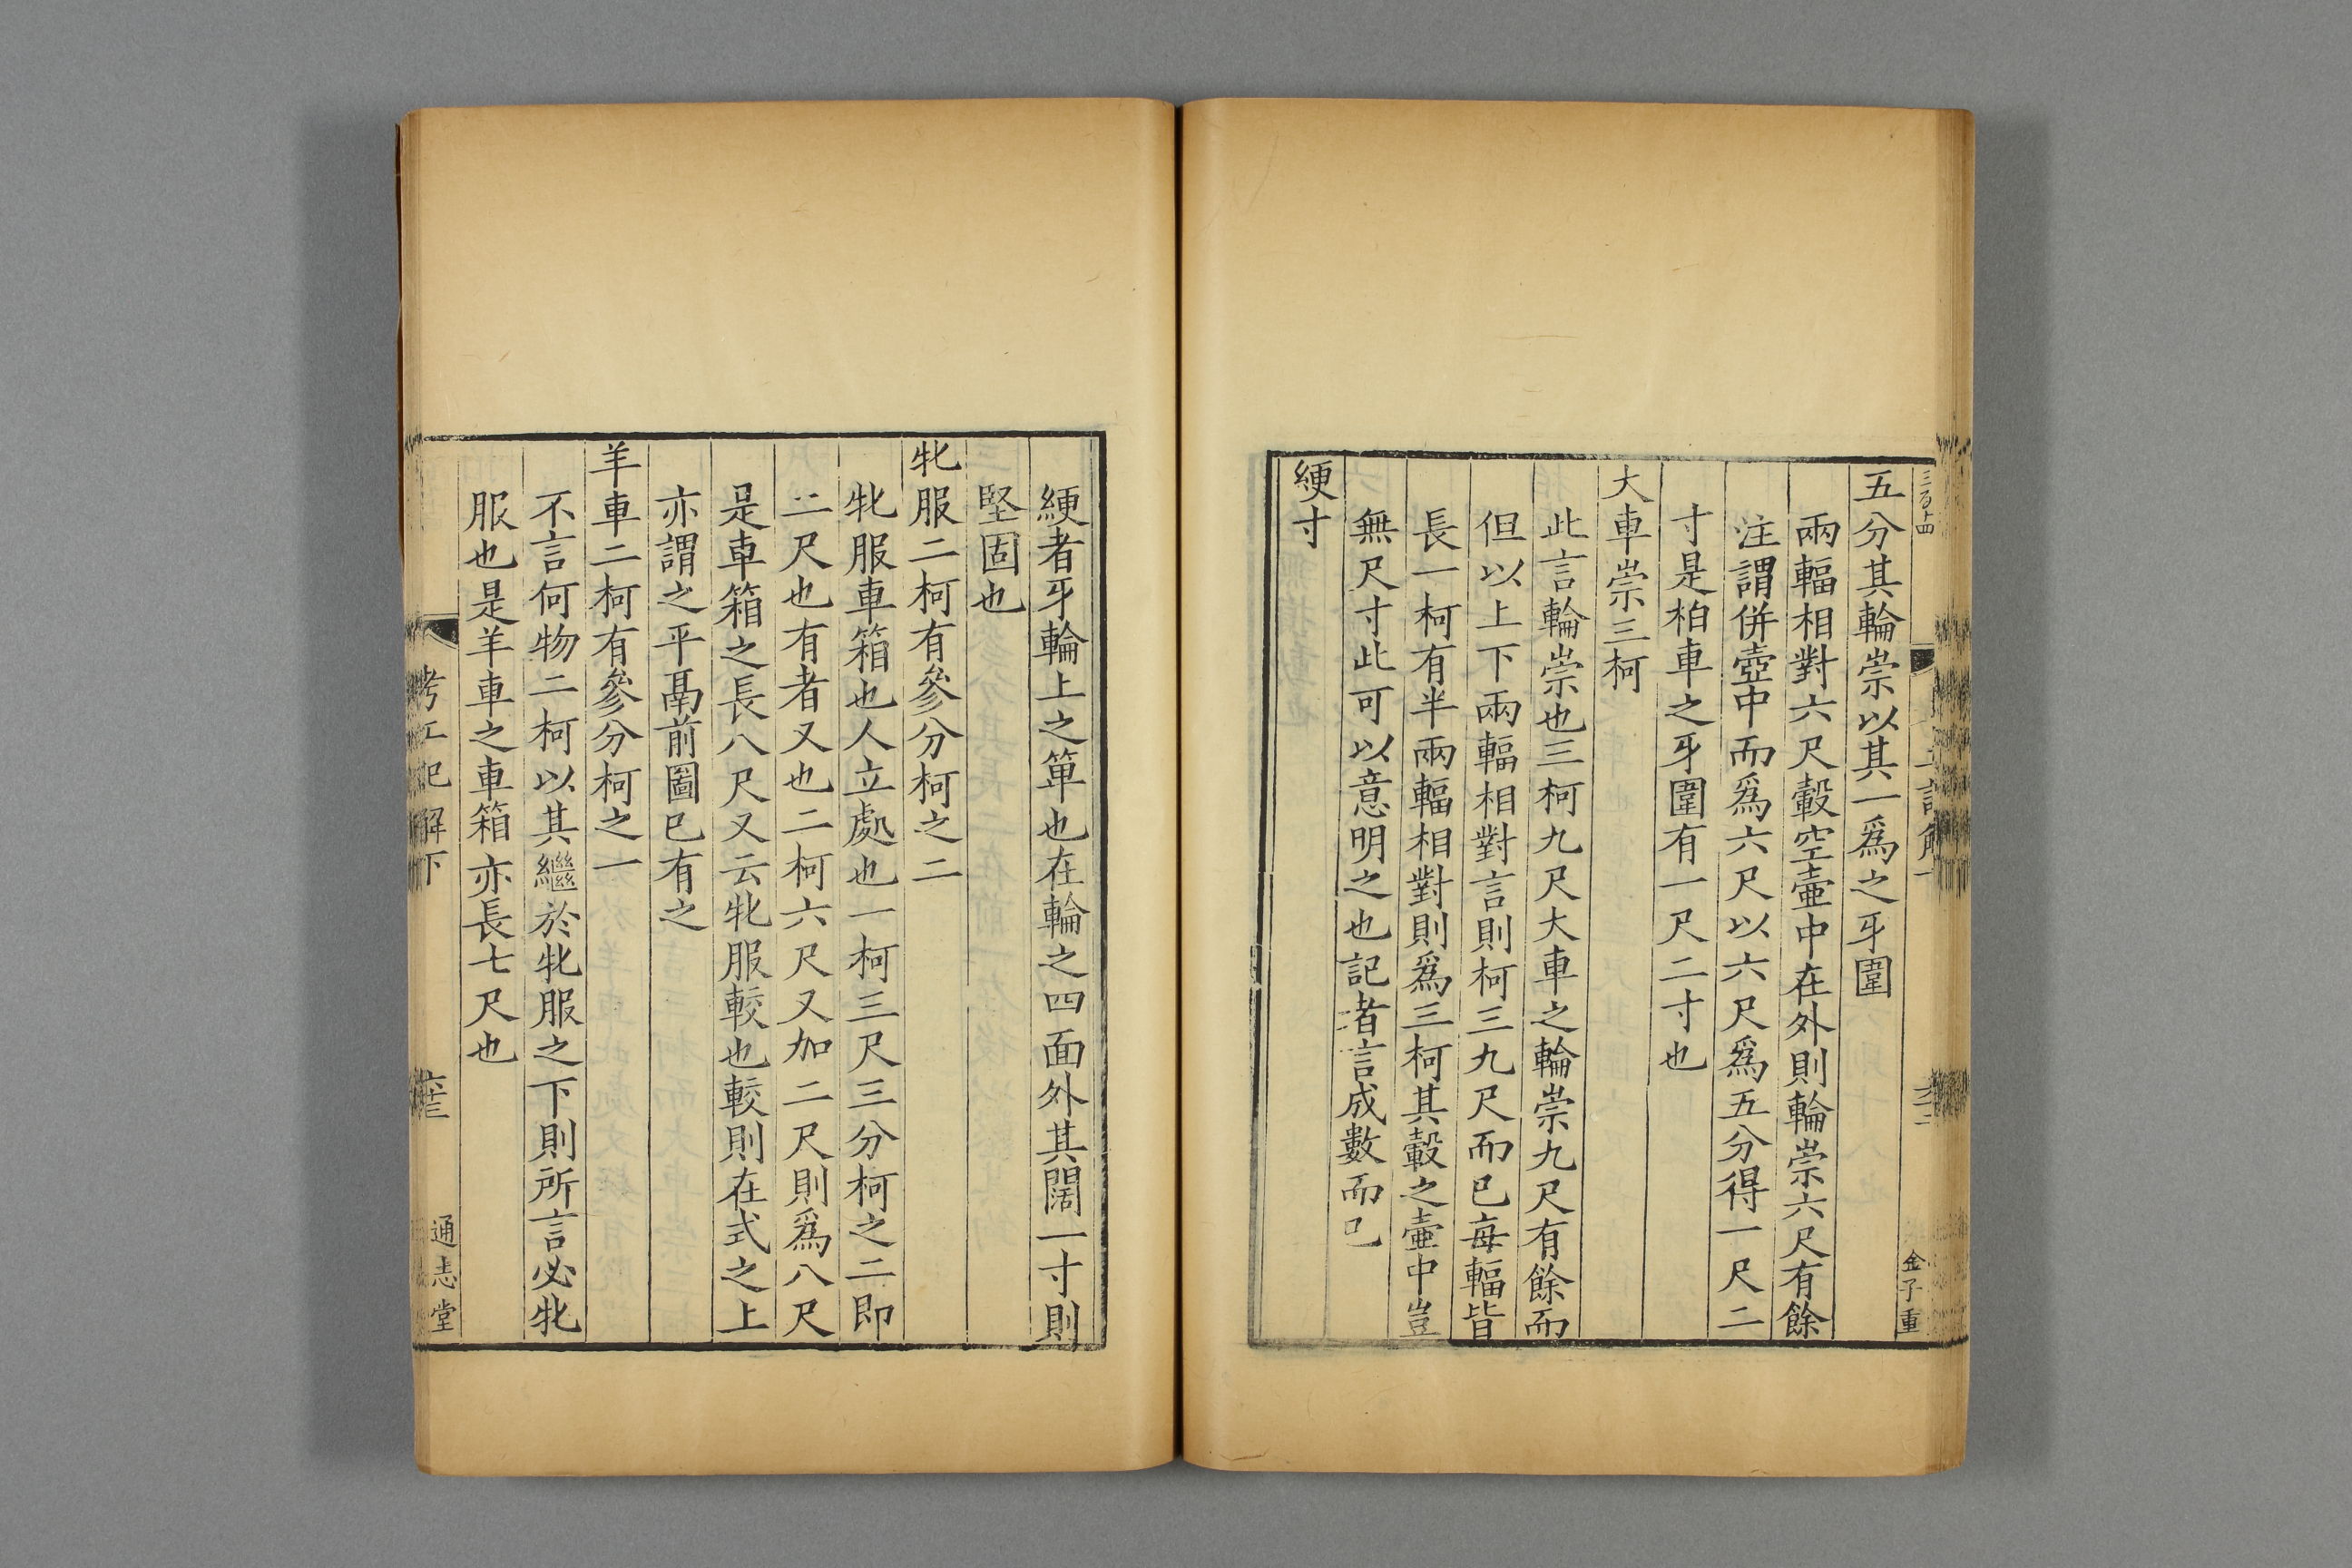 五分其輪崇以其一爲之牙圍
兩輻相對六尺轂空壺中在外則輪崇六尺有餘
注謂併壺中而爲六尺以六尺爲五分得一尺二
寸是柏車之牙圍有一尺二寸也
大車崇三柯
此言輪崇也三柯九尺大車之輪崇九尺有餘而
但以上下兩輻相對言則柯三九尺而已每輻皆
長一柯有半兩輻相對則爲三柯其轂之壺中豈
無尺寸此可以意明之也記者言成數而已
綆寸
金子重
綆者牙輪上之箄也在輪之四面外其闊一寸則
堅固也
牝服二柯有參分柯之二
牝服車箱也人立處也一柯三尺三分柯之二即
二尺也有者又也二柯六尺又加二尺則爲八尺
是車箱之長八尺又云牝服較也較則在式之上
亦謂之平鬲前圖已有之
羊車二柯有參分柯之一
不言何物二柯以其繼於牝服之下則所言必牝
服也是羊車之車箱亦長七尺也
考工記解下
通志堂